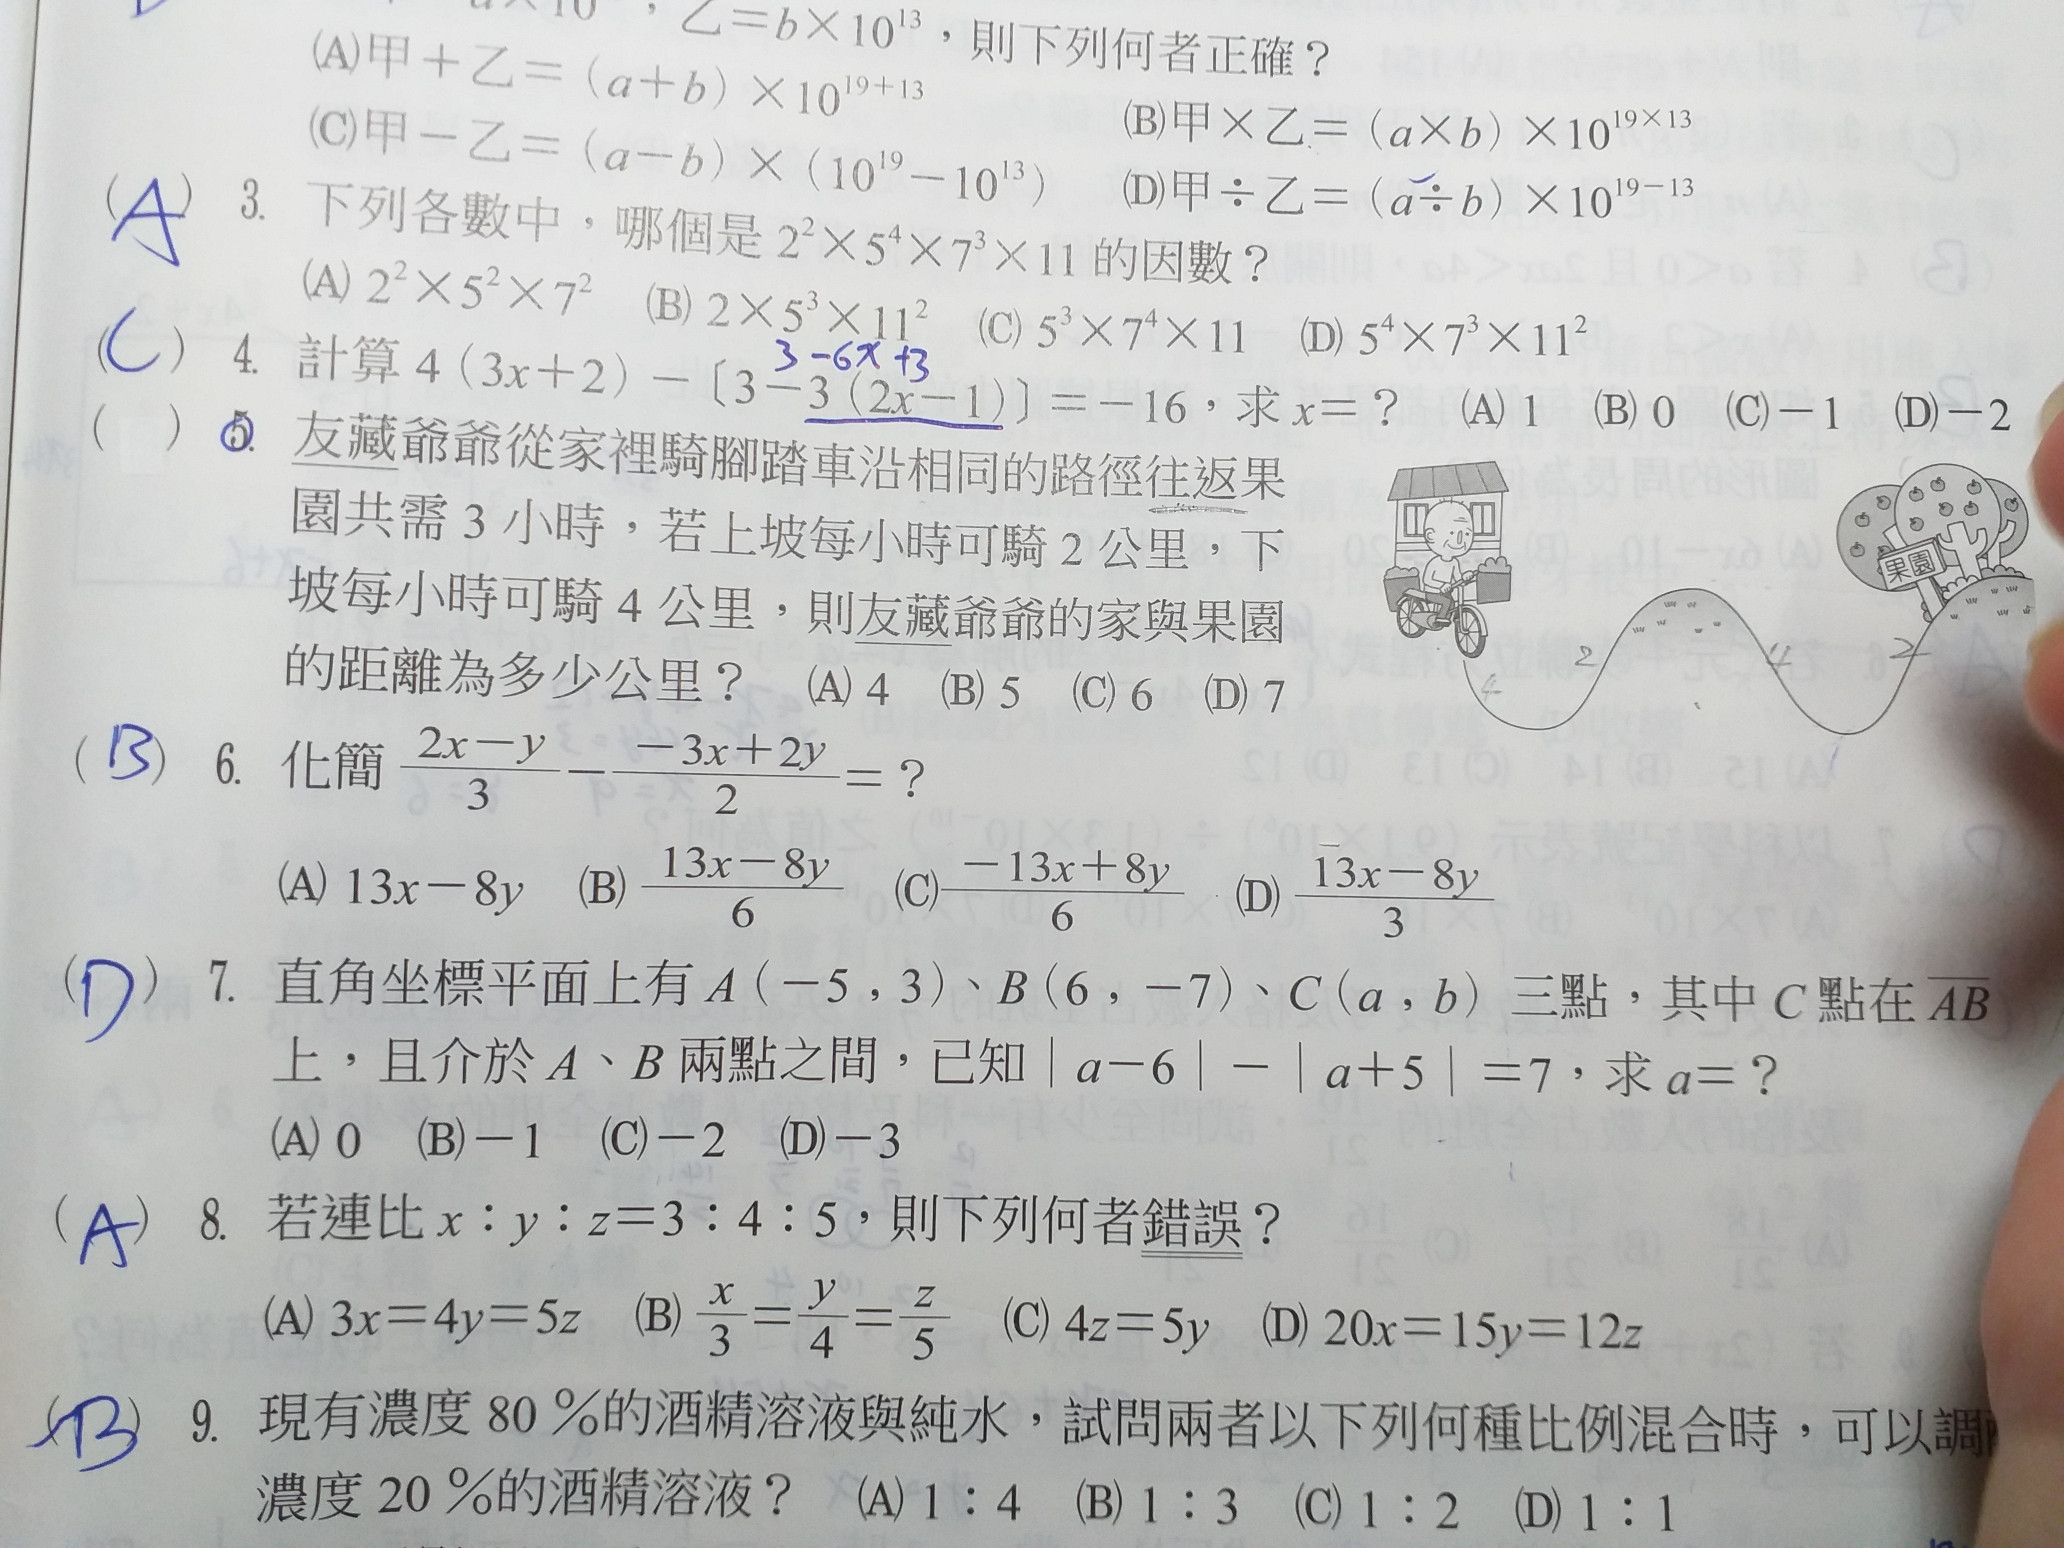 乙＝b×10¹³，則下列何者正確？
(A)甲＋乙＝（a＋b）×10¹⁹⁺¹³
(B)甲×乙＝（a×b）×10¹⁹ˣ¹³
(C)甲－乙＝（a－b）×（10¹⁹－10¹³）
(D)甲÷乙＝（a÷b）×10¹⁹⁻¹³
(A) 3. 下列各數中，哪個是 2²×5⁴×7³×11 的因數？
(A) 2²×5²×7² (B) 2×5³×11² (C) 5³×7⁴×11 (D) 5⁴×7³×11²
3-6x+3
(C) 4. 計算 4（3x＋2）－〔3－3（2x－1）〕＝－16，求 x＝？ (A) 1 (B) 0 (C)－1 (D)－2
( ) 5. 友藏爺爺從家裡騎腳踏車沿相同的路徑往返果
園共需 3 小時，若上坡每小時可騎 2 公里，下
坡每小時可騎 4 公里，則友藏爺爺的家與果園
的距離為多少公里？ (A) 4 (B) 5 (C) 6 (D) 7
果園
4 2 4 2
(B) 6. 化簡 (2x－y)/3－(－3x＋2y)/2＝？
(A) 13x－8y (B) (13x－8y)/6 (C) (－13x＋8y)/6 (D) (13x－8y)/3
(D) 7. 直角坐標平面上有 A（－5，3）、B（6，－7）、C（a，b）三點，其中 C 點在 A̅B̅
上，且介於 A、B 兩點之間，已知｜a－6｜－｜a＋5｜＝7，求 a＝？
(A) 0 (B)－1 (C)－2 (D)－3
(A) 8. 若連比 x：y：z＝3：4：5，則下列何者錯誤？
(A) 3x＝4y＝5z (B) x/3＝y/4＝z/5 (C) 4z＝5y (D) 20x＝15y＝12z
(B) 9. 現有濃度 80 %的酒精溶液與純水，試問兩者以下列何種比例混合時，可以調
濃度 20 %的酒精溶液？ (A) 1：4 (B) 1：3 (C) 1：2 (D) 1：1